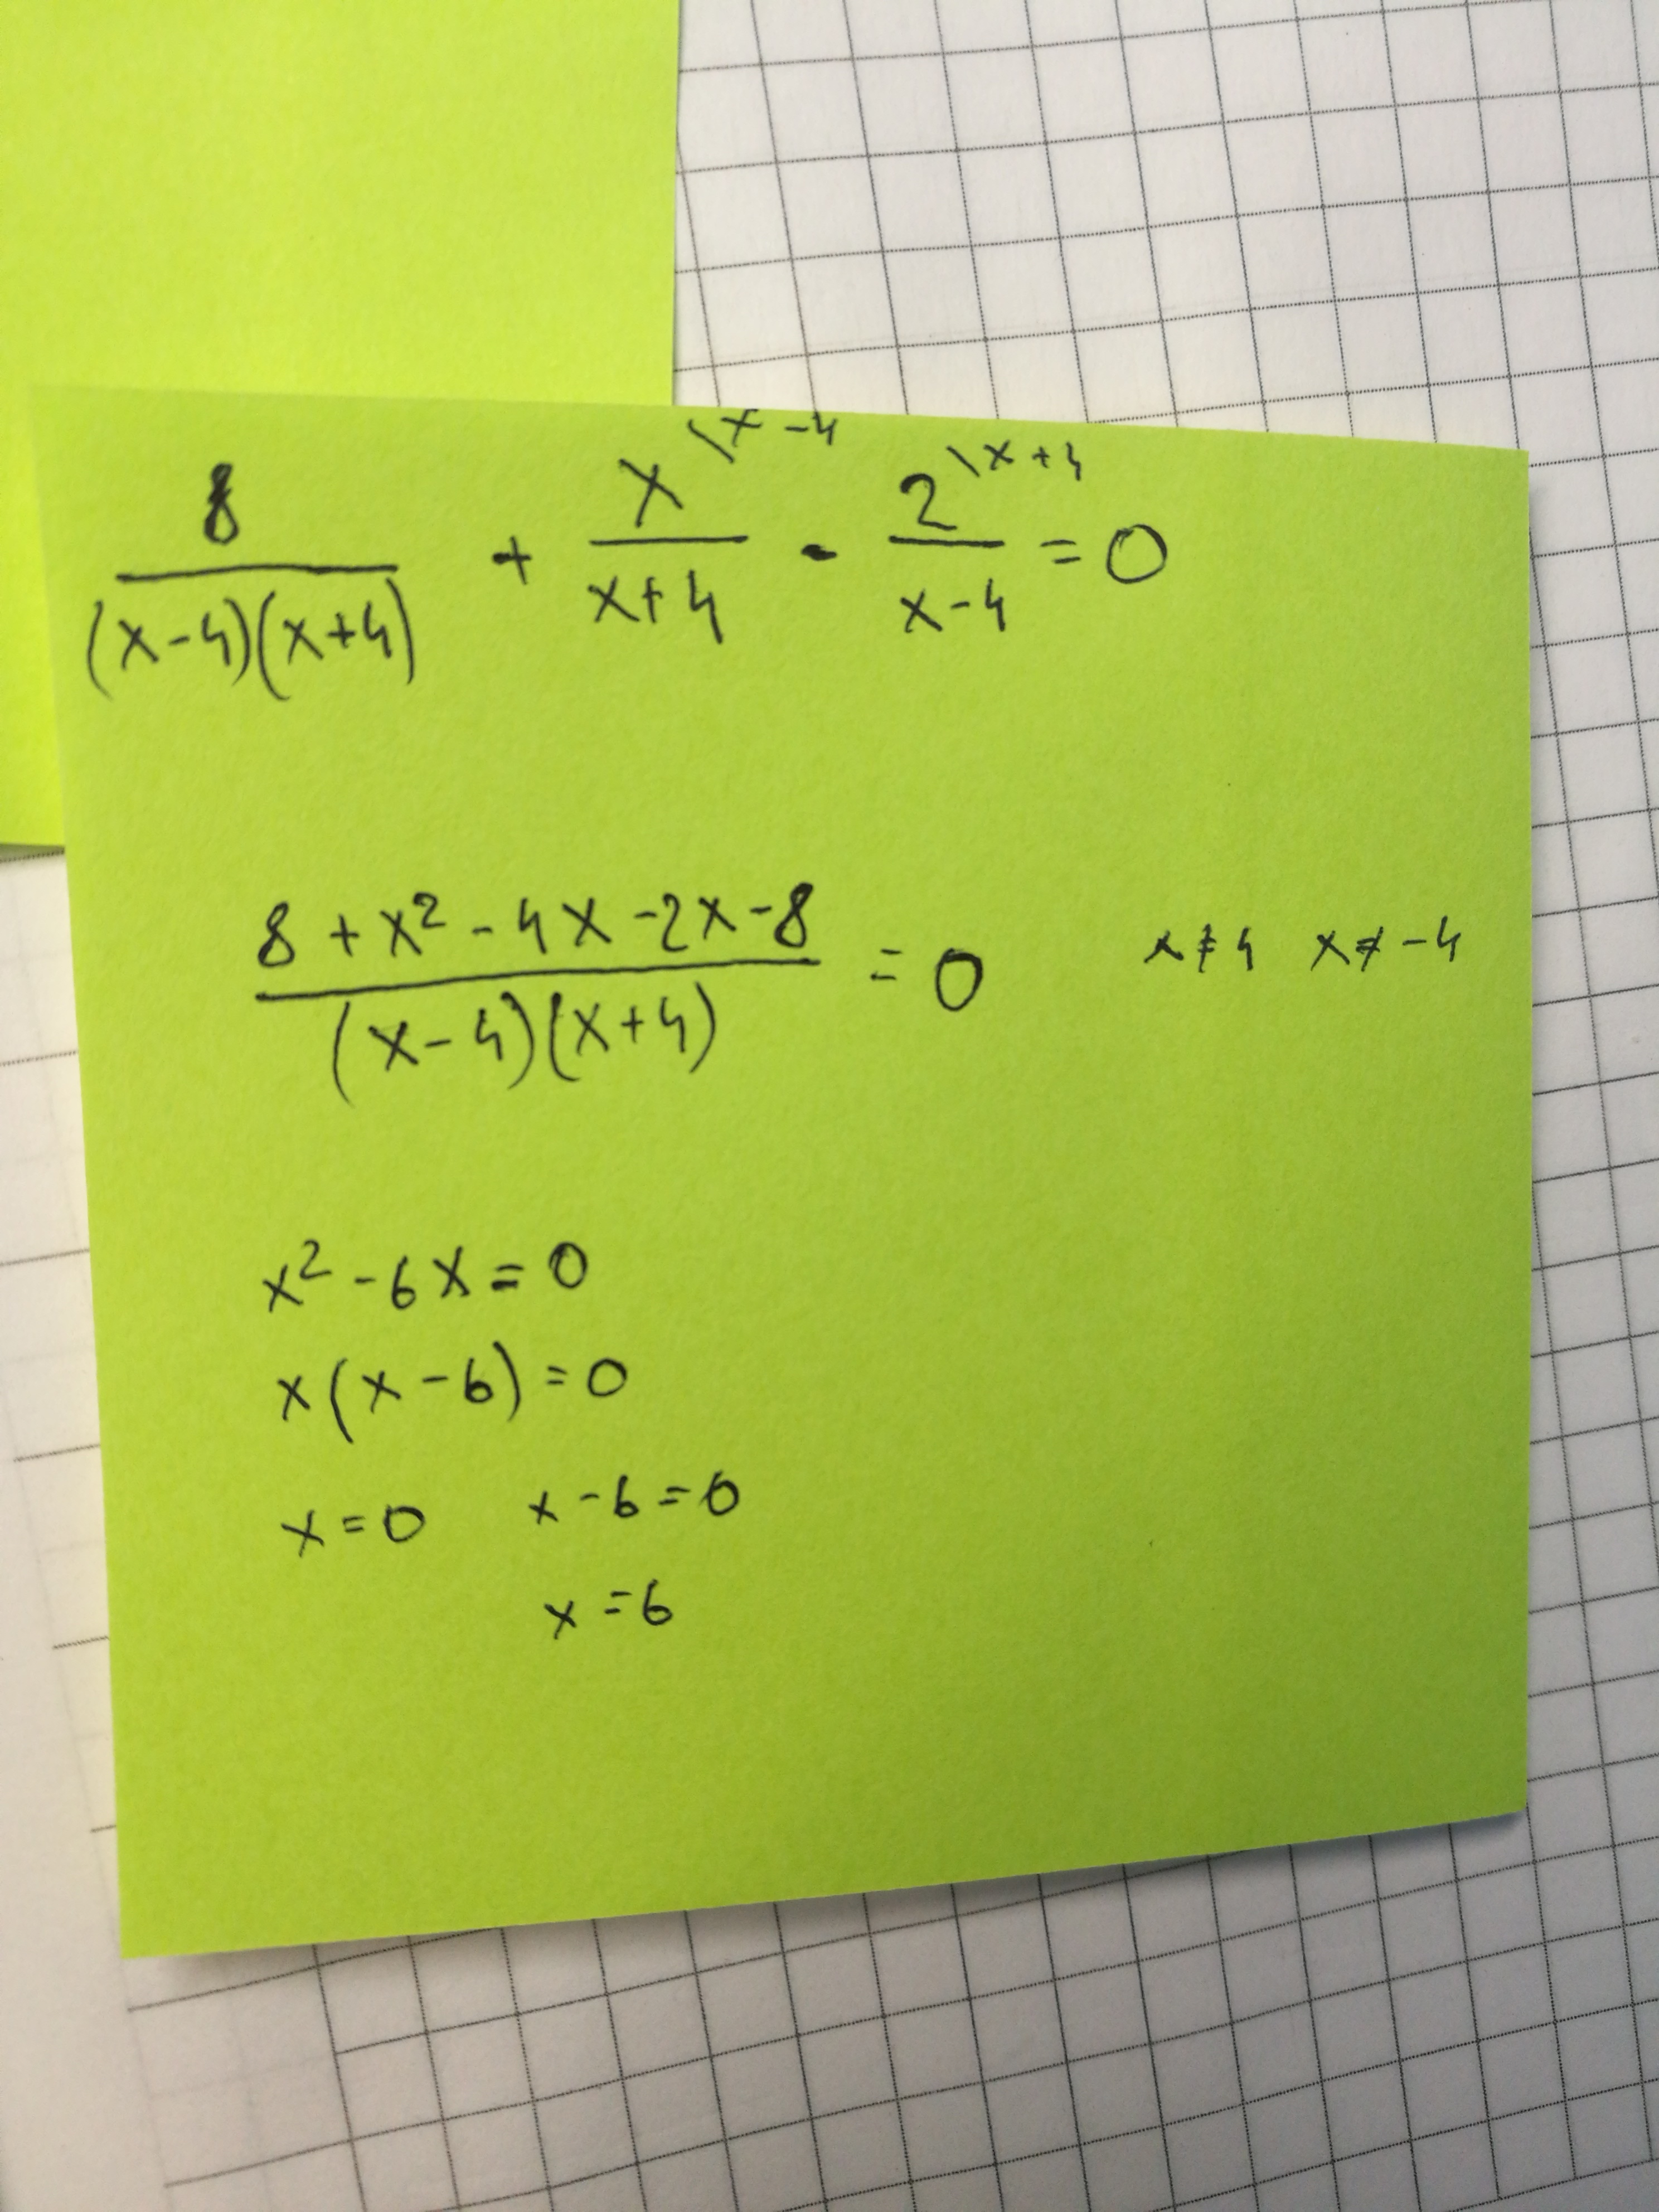 \x-4 \x+4
8 + x - 2 = 0
(x-4)(x+4) x+4 x-4
8 + x² - 4x - 2x - 8 = 0 x≠4 x≠-4
(x-4)(x+4)
x² - 6x = 0
x(x-6) = 0
x = 0 x - 6 = 0
x = 6